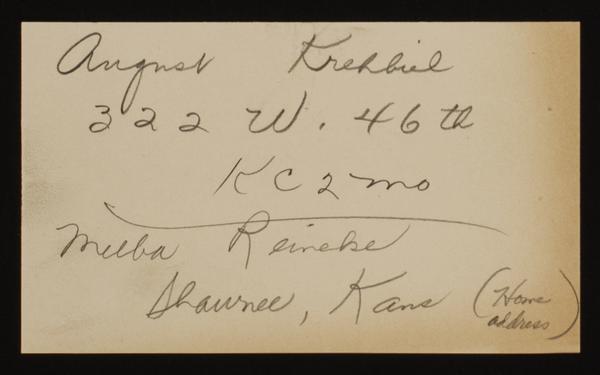 August Krehbiel
322 W. 46th
KC 2 Mo
Melba Reineke
Shawnee, Kans (Home address)